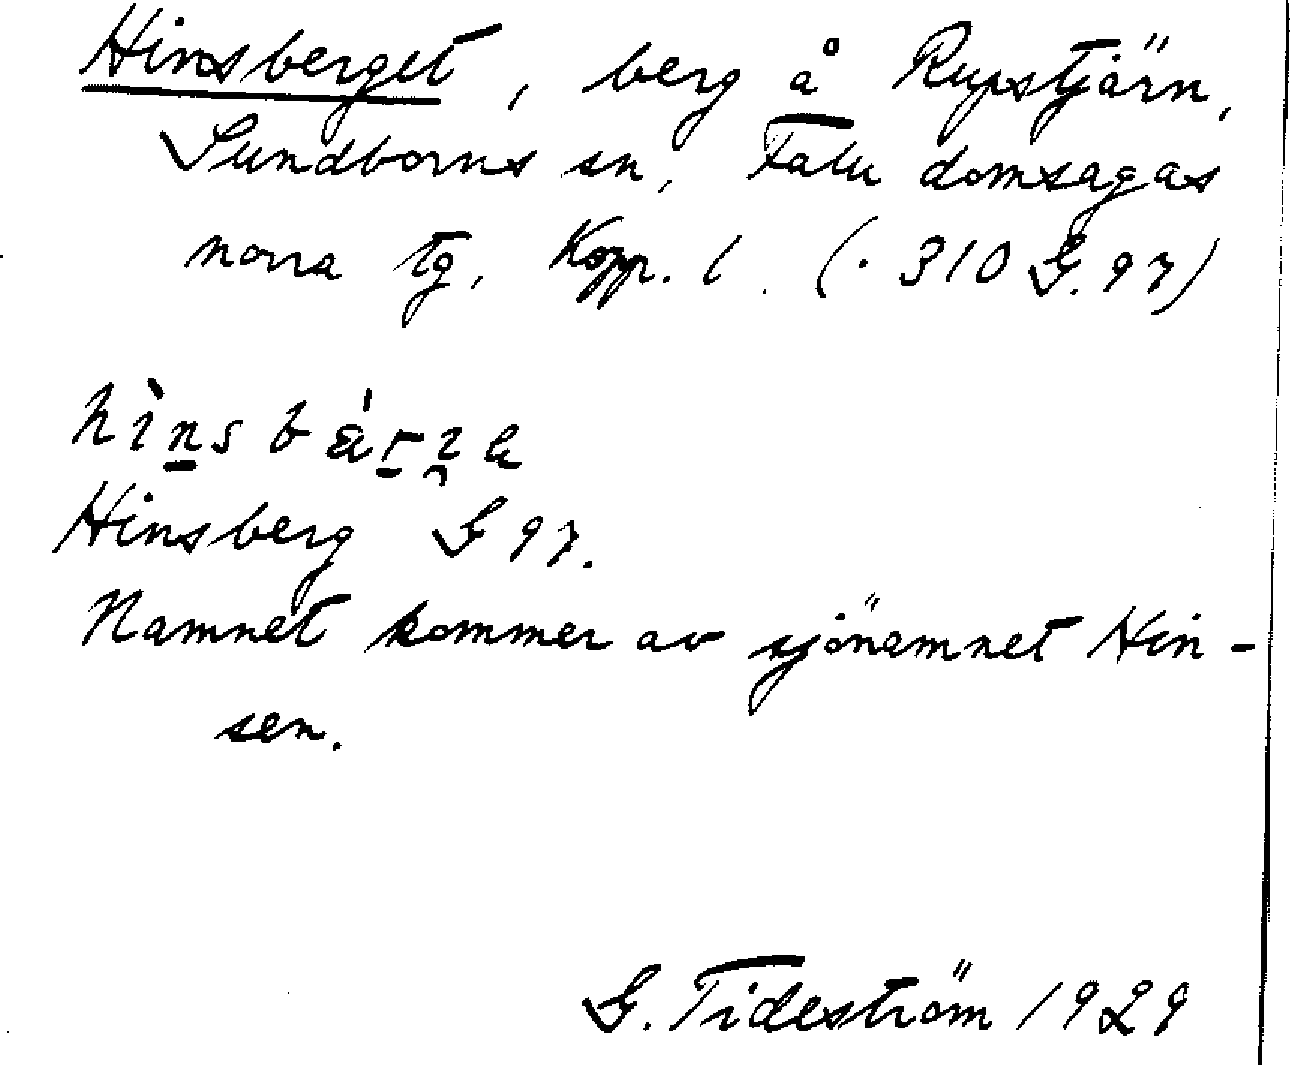 Hinsberget, berg å Rupstjärn,
Sundborns sn, Falu domsagas
norra tg, Kopp. l. (· 310 G. 97)
Hinsberg G 97.
Namnet kommer av sjönamnet Hin-
sen.
G. Tideström 1929